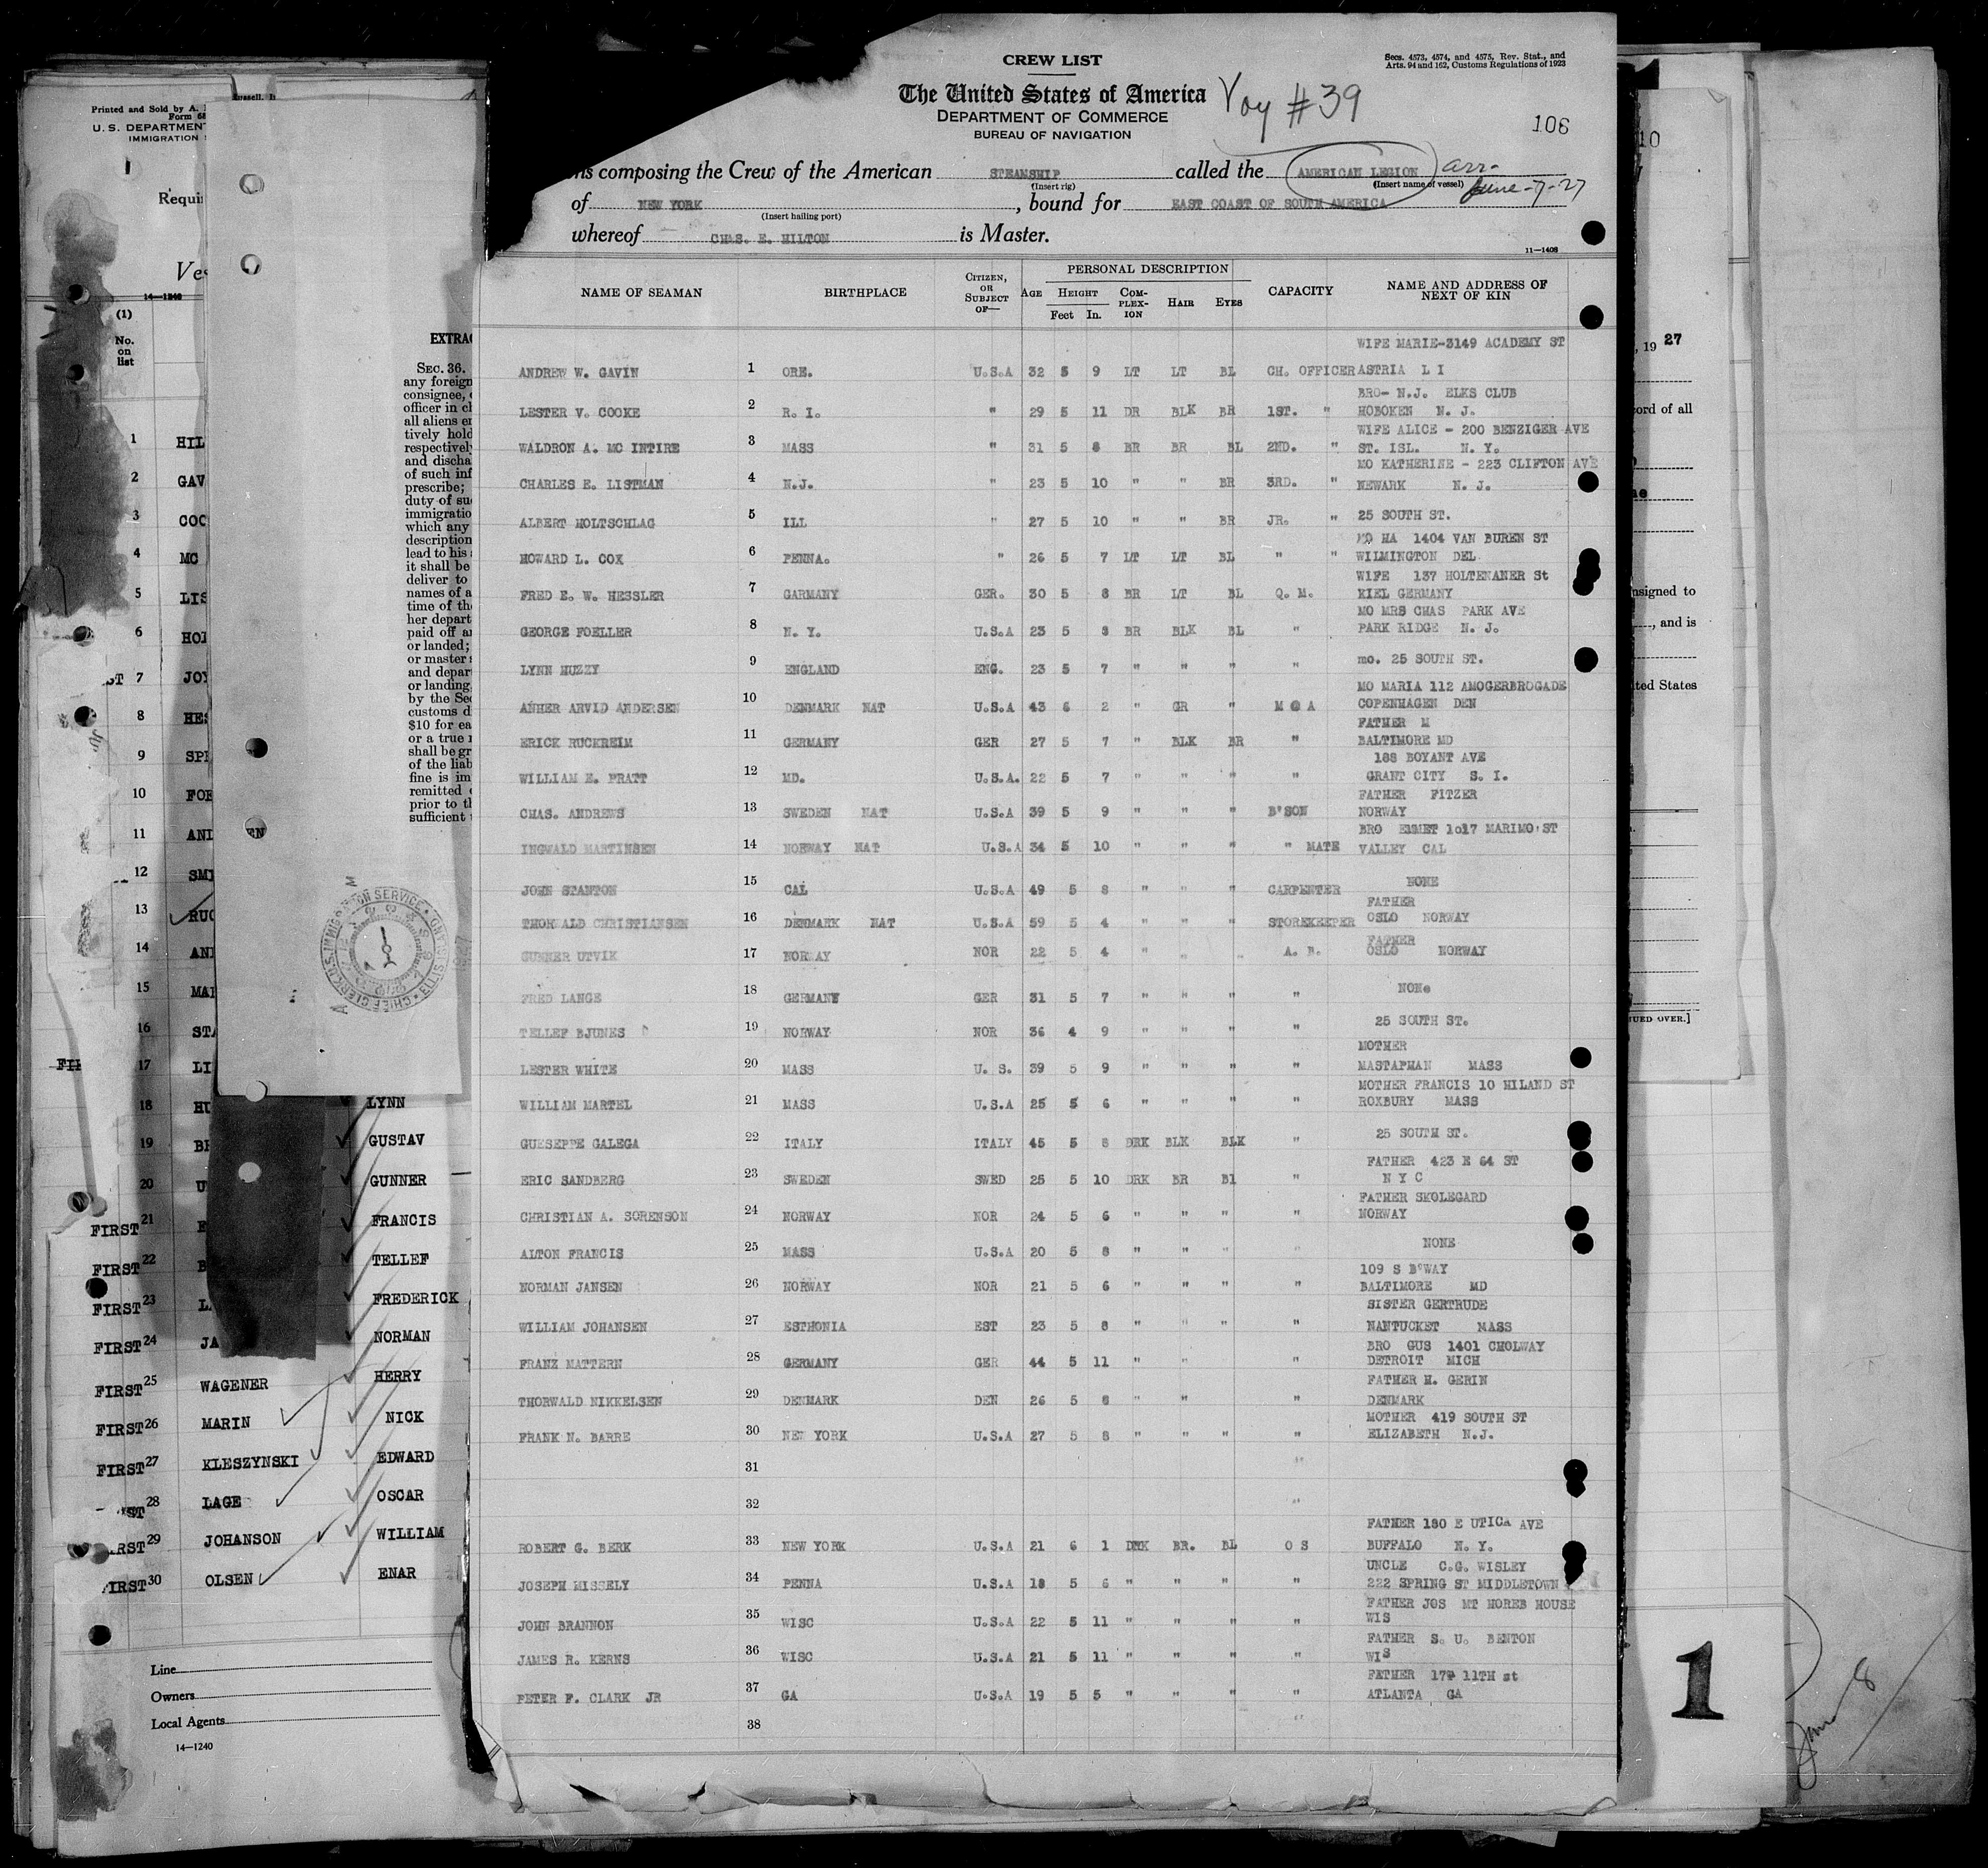 CREW LIST
Secs. 4573, 4574, and 4575, Rev. Stat., and
Arts. 94 and 162, Customs Regulations of 1923
The United States of America
Voy #39
DEPARTMENT OF COMMERCE
BUREAU OF NAVIGATION
106
ns composing the Crew of the American STEAMSHIP called the AMERICAN LEGION arr-
(Insert rig) (Insert name of vessel) June-7-27
of NEW YORK , bound for EAST COAST OF SOUTH AMERICA
(Insert hailing port)
whereof CHAS. E. HILTON is Master.
11-1408
NAME OF SEAMAN BIRTHPLACE CITIZEN, OR SUBJECT OF— AGE PERSONAL DESCRIPTION HEIGHT Feet In. COMPLEXION HAIR EYES CAPACITY NAME AND ADDRESS OF NEXT OF KIN
WIFE MARIE-3149 ACADEMY ST
ANDREW W. GAVIN 1 ORE. U.S.A 32 5 9 LT LT BL CH. OFFICER ASTRIA L I
BRO- N.J. ELKS CLUB
LESTER V. COOKE 2 R. I. " 29 5 11 DR BLK BR 1ST. " HOBOKEN N. J.
WIFE ALICE - 200 BENZIGER AVE
WALDRON A. MC INTIRE 3 MASS " 31 5 8 BR BR BL 2ND. " ST. ISL. N. Y.
MO KATHERINE - 223 CLIFTON AVE
CHARLES E. LISTMAN 4 N.J. " 23 5 10 " " BR 3RD. " NEWARK N. J.
ALBERT HOLTSCHLAG 5 ILL " 27 5 10 " " BR JR. " 25 SOUTH ST.
MO HA 1404 VAN BUREN ST
HOWARD L. COX 6 PENNA. " 26 5 7 LT LT BL " " WILMINGTON DEL
WIFE 137 HOLTENANER St
FRED E. W. HESSLER 7 GARMANY GER. 30 5 8 BR LT BL Q. M. KIEL GERMANY
MO MRS CHAS PARK AVE
GEORGE FOELLER 8 N. Y. U.S.A 23 5 8 BR BLK BL " PARK RIDGE N. J.
LYNN HUZZY 9 ENGLAND ENG. 23 5 7 " " " " mo. 25 SOUTH ST.
MO MARIA 112 AMOGERBROGADE
ANHER ARVID ANDERSEN 10 DENMARK NAT U.S.A 43 6 2 " GR " M @ A COPENHAGEN DEN
FATHER M
ERICK RUCKREIM 11 GERMANY GER 27 5 7 " BLK BR " BALTIMORE MD
188 BOYANT AVE
WILLIAM E. PRATT 12 MD. U.S.A. 22 5 7 " " " " GRANT CITY S. I.
FATHER FITZER
CHAS. ANDREWS 13 SWEDEN NAT U.S.A 39 5 9 " " " B'SON NORWAY
BRO EMMET 1017 MARIMO ST
INGWALD MARTINSEN 14 NORWAY NAT U.S.A 34 5 10 " " " " MATE VALLEY CAL
JOHN STANTON 15 CAL U.S.A 49 5 8 " " " CARPENTER NONE
FATHER
THORWALD CHRISTIANSEN 16 DENMARK NAT U.S.A 59 5 4 " " " STOREKEEPER OSLO NORWAY
FATHER
GUNNER UTVIK 17 NORWAY NOR 22 5 4 " " " A. B. OSLO NORWAY
FRED LANGE 18 GERMANY GER 31 5 7 " " " " NONe
TELLEF BJUNES 19 NORWAY NOR 36 4 9 " " " " 25 SOUTH ST.
MOTHER
LESTER WHITE 20 MASS U. S. 39 5 9 " " " " MASTAPMAN MASS
MOTHER FRANCIS 10 HILAND ST
WILLIAM MARTEL 21 MASS U.S.A 25 5 6 " " " " ROXBURY MASS
GUESEPPE GALEGA 22 ITALY ITALY 45 5 8 DRK BLK BLK " 25 SOUTH ST.
FATHER 423 E 64 ST
ERIC SANDBERG 23 SWEDEN SWED 25 5 10 DRK BR Bl " N Y C
FATHER SKOLEGARD
CHRISTIAN A. SORENSON 24 NORWAY NOR 24 5 6 " " " " NORWAY
ALTON FRANCIS 25 MASS U.S.A 20 5 8 " " " " NONE
109 S B'WAY
NORMAN JANSEN 26 NORWAY NOR 21 5 6 " " " " BALTIMORE MD
SISTER GERTRUDE
WILLIAM JOHANSEN 27 ESTHONIA EST 23 5 8 " " " " NANTUCKET MASS
BRO GUS 1401 CHOLWAY
FRANZ MATTERN 28 GERMANY GER 44 5 11 " " " DETROIT MICH
FATHER H. GERIN
THORWALD NIKKELSEN 29 DENMARK DEN 26 5 8 " " " DENMARK
MOTHER 419 SOUTH ST
FRANK N. BARRE 30 NEW YORK U.S.A 27 5 8 " " " " ELIZABETH N.J.
31 "
32 "
FATHER 180 E UTICA AVE
ROBERT G. BERK 33 NEW YORK U.S.A 21 6 1 DRK BR. BL O S BUFFALO N. Y.
UNCLE C.G. WISLEY
JOSEPH MISSELY 34 PENNA U.S.A 18 5 6 " " " " 222 SPRING ST MIDDLETOWN
FATHER JOS MT HOREB HOUSE
JOHN BRANNON 35 WISC U.S.A 22 5 11 " " " " WIS
FATHER S. U. BENTON
JAMES R. KERNS 36 WISC U.S.A 21 5 11 " " " " WIS
FATHER 179 11TH st
PETER F. CLARK JR 37 GA U.S.A 19 5 5 " " " " ATLANTA GA
38 "
Printed and Sold by A.
U. S. DEPARTMENT
IMMIGRATION
Requi
Ves
14-1240
(1)
No.
on
list
1 HIL
2 GAV
3 COO
4 MC
5 LIS
6 HOL
7 JOY
8 HES
9 SPE
10 FOE
11 AND EN
12 SMI
13 RUC
14 AND
15 MAR
16 STA
17 LI
18 HU LYNN
19 BR GUSTAV
20 U GUNNER
FIRST 21 FRANCIS
FIRST 22 B TELLEF
FIRST 23 L FREDERICK
FIRST 24 JA NORMAN
FIRST 25 WAGENER HERRY
FIRST 26 MARIN NICK
FIRST 27 KLESZYNSKI EDWARD
28 LAGE OSCAR
RST 29 JOHANSON WILLIAM
FIRST 30 OLSEN ENAR
Line
Owners
Local Agents
14-1240
EXTRAC
SEC. 36.
any foreign
consignee,
officer in ch
all aliens em
tively hold
respectively
and discha
of such inf
prescribe;
duty of su
immigratio
which any
description
lead to his
it shall be
deliver to
names of a
time of the
her depart
paid off an
or landed;
or master
and depar
or landing,
by the Sec
customs d
$10 for ea
or a true
shall be gr
of the liab
fine is im
remitted
prior to th
sufficient
CHIEF CLERK U.S. IMMIGRATION SERVICE ELLIS ISLAND
10
, 19 27
ord of all
nsigned to
, and is
ted States
UED OVER.]
1
8